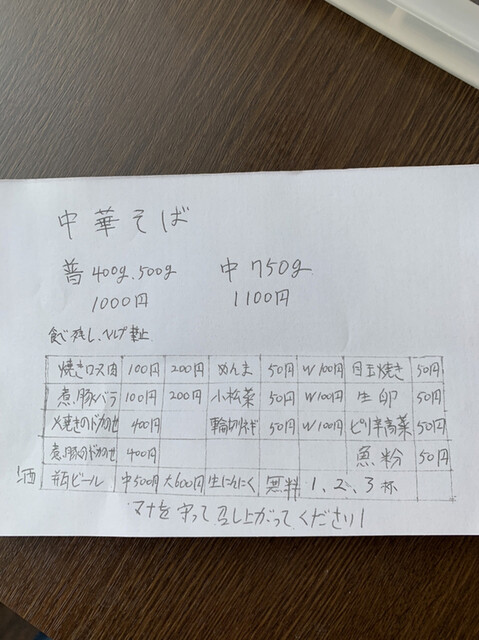 中華そば
普400g、500g 中750g
1000円 1100円
食べ残し、ヘルプ禁止
焼きロス肉 100円 200円 めんま 50円 W100円 目玉焼き 50円
煮豚バラ 100円 200円 小松菜 50円 W100円 生卵 50円
焼きのドカのせ 400円 輪切りネギ 50円 W100円 ピリ辛高菜 50円
煮豚のドカのせ 400円 魚粉 50円
酒 瓶ビール 中500円 大600円 生にんにく 無料 1、2、3杯
マナを守って召し上がってください!